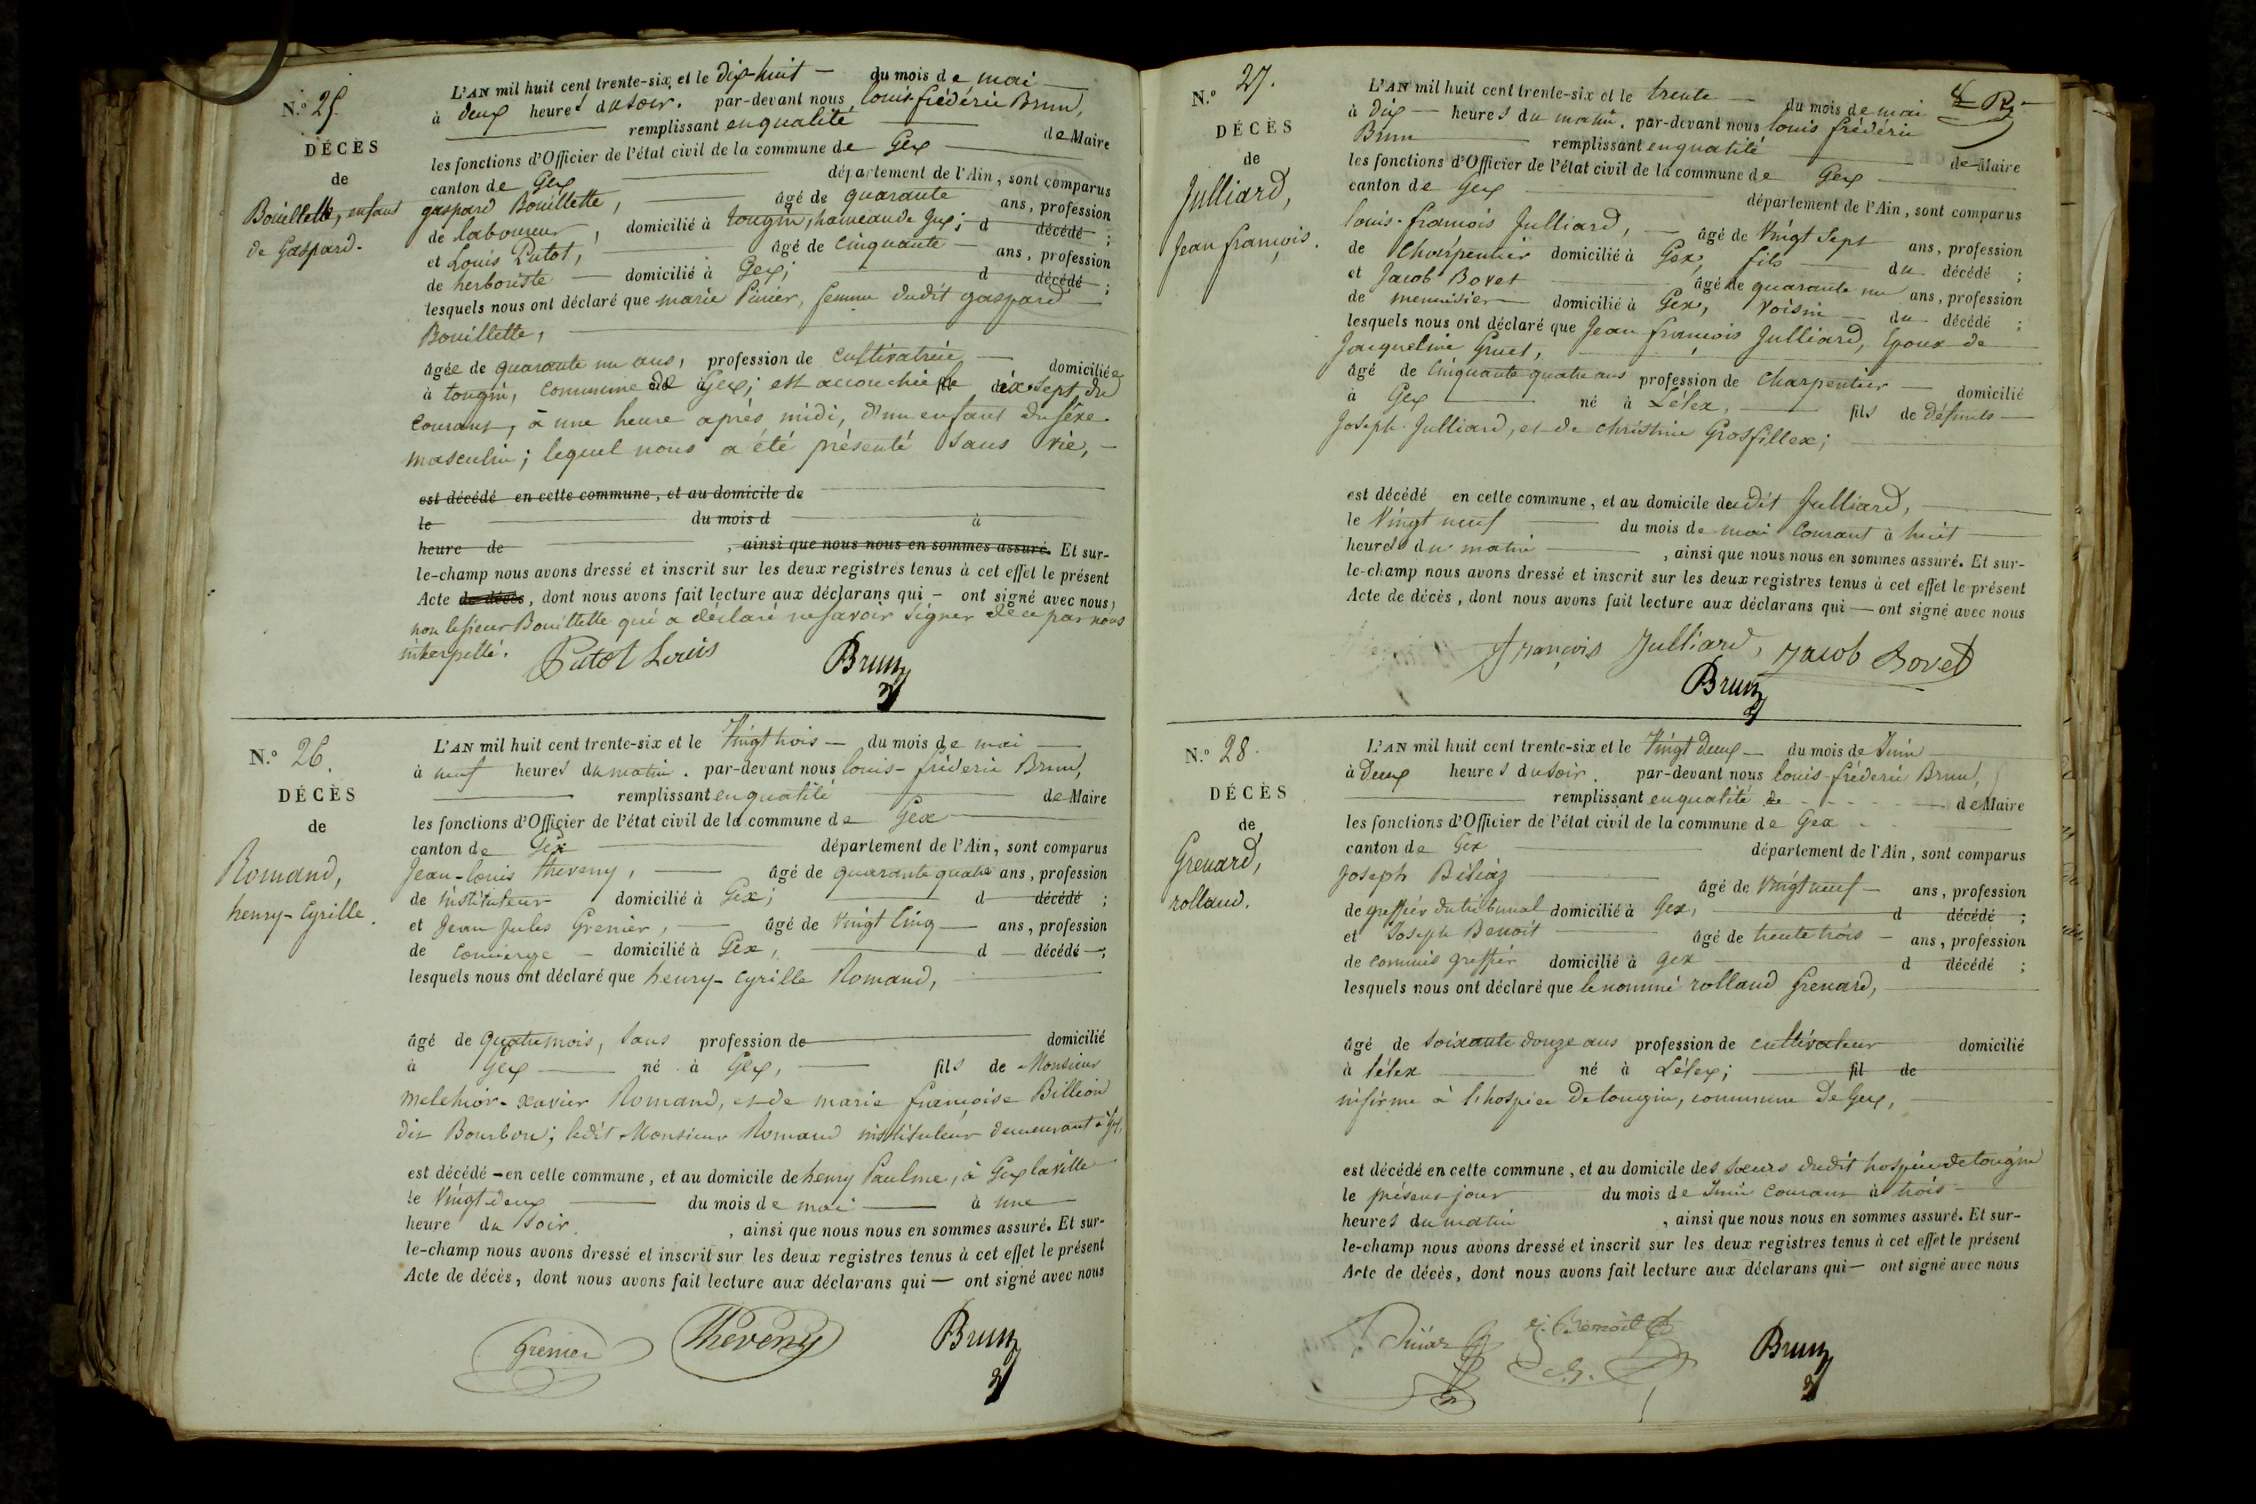 N.º 25.
DÉCÈS
de
Bouillette, enfant
de Gaspard.
L'AN mil huit cent trente-six et le dix-huit — du mois de mai —
à deux heures du soir. par-devant nous louis-frédéric Brun,
remplissant en qualité de Maire
les fonctions d'Officier de l'état civil de la commune de Gex
canton de Gex département de l'Ain, sont comparus
gaspard Bouillette, âgé de quarante ans, profession
de laboureur, domicilié à tougin, hameau de Gex; d décédé ;
et Louis Putot, âgé de cinquante — ans, profession
de herboriste — domicilié à Gex; d décédé ;
lesquels nous ont déclaré que marie Pinier, femme dudit gaspard
Bouillette,
âgée de quarante un ans, profession de cultivatrice — domiciliée
à tougin, commune de Gex; est accouchée le dix-sept du
courant, à une heure après midi, d'un enfant du sèxe
masculin; lequel nous a été présenté sans vie, —
est décédé en cette commune, et au domicile de
le du mois d à
heure de , ainsi que nous nous en sommes assuré. Et sur-
le-champ nous avons dressé et inscrit sur les deux registres tenus à cet effet le présent
Acte de décès, dont nous avons fait lecture aux déclarans qui — ont signé avec nous,
non le sieur Bouillette qui a déclaré ne savoir signer de ce par nous
interpellé. Putot Louis Brun
N.º 26.
DÉCÈS
de
Romand,
henry-Cyrille.
L'AN mil huit cent trente-six et le Vingt trois — du mois de mai —
à neuf heures du matin. par-devant nous louis-fréderic Brun,
remplissant en qualité de Maire
les fonctions d'Officier de l'état civil de la commune de Gex
canton de Gex département de l'Ain, sont comparus
Jean-louis theveny, — âgé de quarante quatre ans, profession
de instituteur domicilié à Gex; d décédé ;
et Jean Jules Grenier, — âgé de vingt cinq — ans, profession
de concierge — domicilié à Gex, d — décédé —;
lesquels nous ont déclaré que henry-Cyrille Romand,
âgé de quatre mois, sans profession de domicilié
à Gex — né à Gex, — fils de Monsieur
melchior-xavier Romand, et de marie françoise Billion
dit Bourbon; ledit Monsieur Romand instituteur demeurant à Gex,
est décédé — en cette commune, et au domicile de henry Paulme, à Gex la ville
le Vingt deux — du mois de mai — à une —
heure du soir. , ainsi que nous nous en sommes assuré. Et sur-
le-champ nous avons dressé et inscrit sur les deux registres tenus à cet effet le présent
Acte de décès, dont nous avons fait lecture aux déclarans qui — ont signé avec nous
Grenier Theveny Brun
N.º 27.
DÉCÈS
de
Julliard,
Jean françois.
L'AN mil huit cent trente-six et le trente — du mois de mai
à dix — heures du matin. par-devant nous louis fréderic
Brun remplissant en qualité de Maire
les fonctions d'Officier de l'état civil de la commune de Gex
canton de Gex département de l'Ain, sont comparus
louis-françois Julliard, — âgé de Vingt sept ans, profession
de Charpentier domicilié à Gex, fils — du décédé ;
et Jacob Bovet âgé de quarante un ans, profession
de menuisier domicilié à Gex, voisin — du décédé ;
lesquels nous ont déclaré que Jean françois Julliard, époux de
Jacqueline Gruet,
âgé de cinquante quatre ans profession de charpentier — domicilié
à Gex né à Lélex, fils de défunts
Joseph Julliard, et de christine Grosfillex;
est décédé en cette commune, et au domicile dudit Julliard,
le Vingt neuf du mois de mai courant à huit
heures du matin , ainsi que nous nous en sommes assuré. Et sur-
le-champ nous avons dressé et inscrit sur les deux registres tenus à cet effet le présent
Acte de décès, dont nous avons fait lecture aux déclarans qui — ont signé avec nous
françois Julliard, Jacob Bovet
Brun
N.º 28.
DÉCÈS
de
Grenard,
rolland.
L'AN mil huit cent trente-six et le Vingt deux — du mois de Juin
à Deux heures du soir. par-devant nous louis-fréderic Brun,
remplissant en qualité de de Maire
les fonctions d'Officier de l'état civil de la commune de Gex
canton de Gex département de l'Ain, sont comparus
Joseph âgé de vingt neuf — ans, profession
de greffier du tribunal domicilié à Gex, d décédé ;
et Joseph Benoit âgé de trente trois — ans, profession
de commis greffier domicilié à Gex d décédé ;
lesquels nous ont déclaré que le nommé rolland Grenard,
âgé de soixante douze ans profession de cultivateur domicilié
à lélex né à Lélex; fil de
infirme à l'hospice de tougin, commune de Gex,
est décédé en cette commune, et au domicile des soeurs dudit hospice de tougin
le présent jour du mois de Juin courant à trois
heures du matin , ainsi que nous nous en sommes assuré. Et sur-
le-champ nous avons dressé et inscrit sur les deux registres tenus à cet effet le présent
Acte de décès, dont nous avons fait lecture aux déclarans qui — ont signé avec nous
J. Benoit Brun